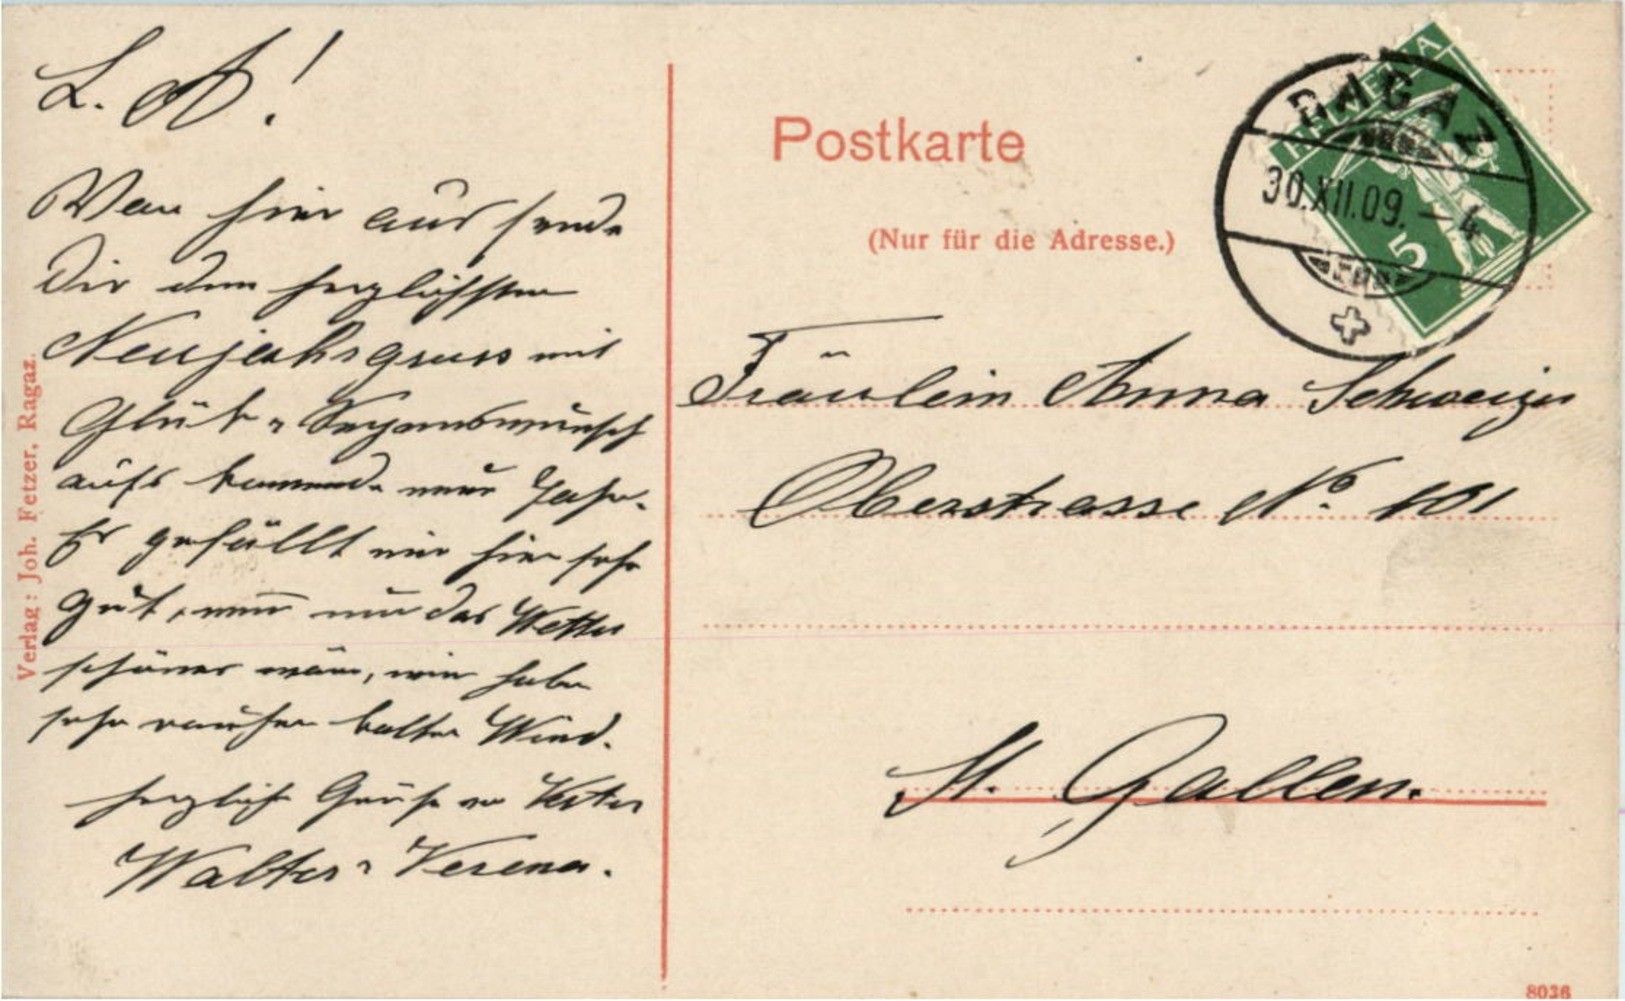 L. A!
Von hier aus sende
Dir den herzlichsten
Neujahrsgruss mit
Glück u. Segenswunsch
aufs kommende neue Jahr.
Es gefällt mir hier sehr
gut, wenn nur das Wetter
schöner wäre, wir haben
sehr rauhen kalten Wind.
herzliche Grüsse von Vetter
Walter u. Verena.
Verlag: Joh. Fetzer, Ragaz.
Postkarte
(Nur für die Adresse.)
RAGAZ
30.XII.09.–4
HELVETIA
5
Fräulein Anna Schweizer
Oberstrasse No. 101
St. Gallen.
8036